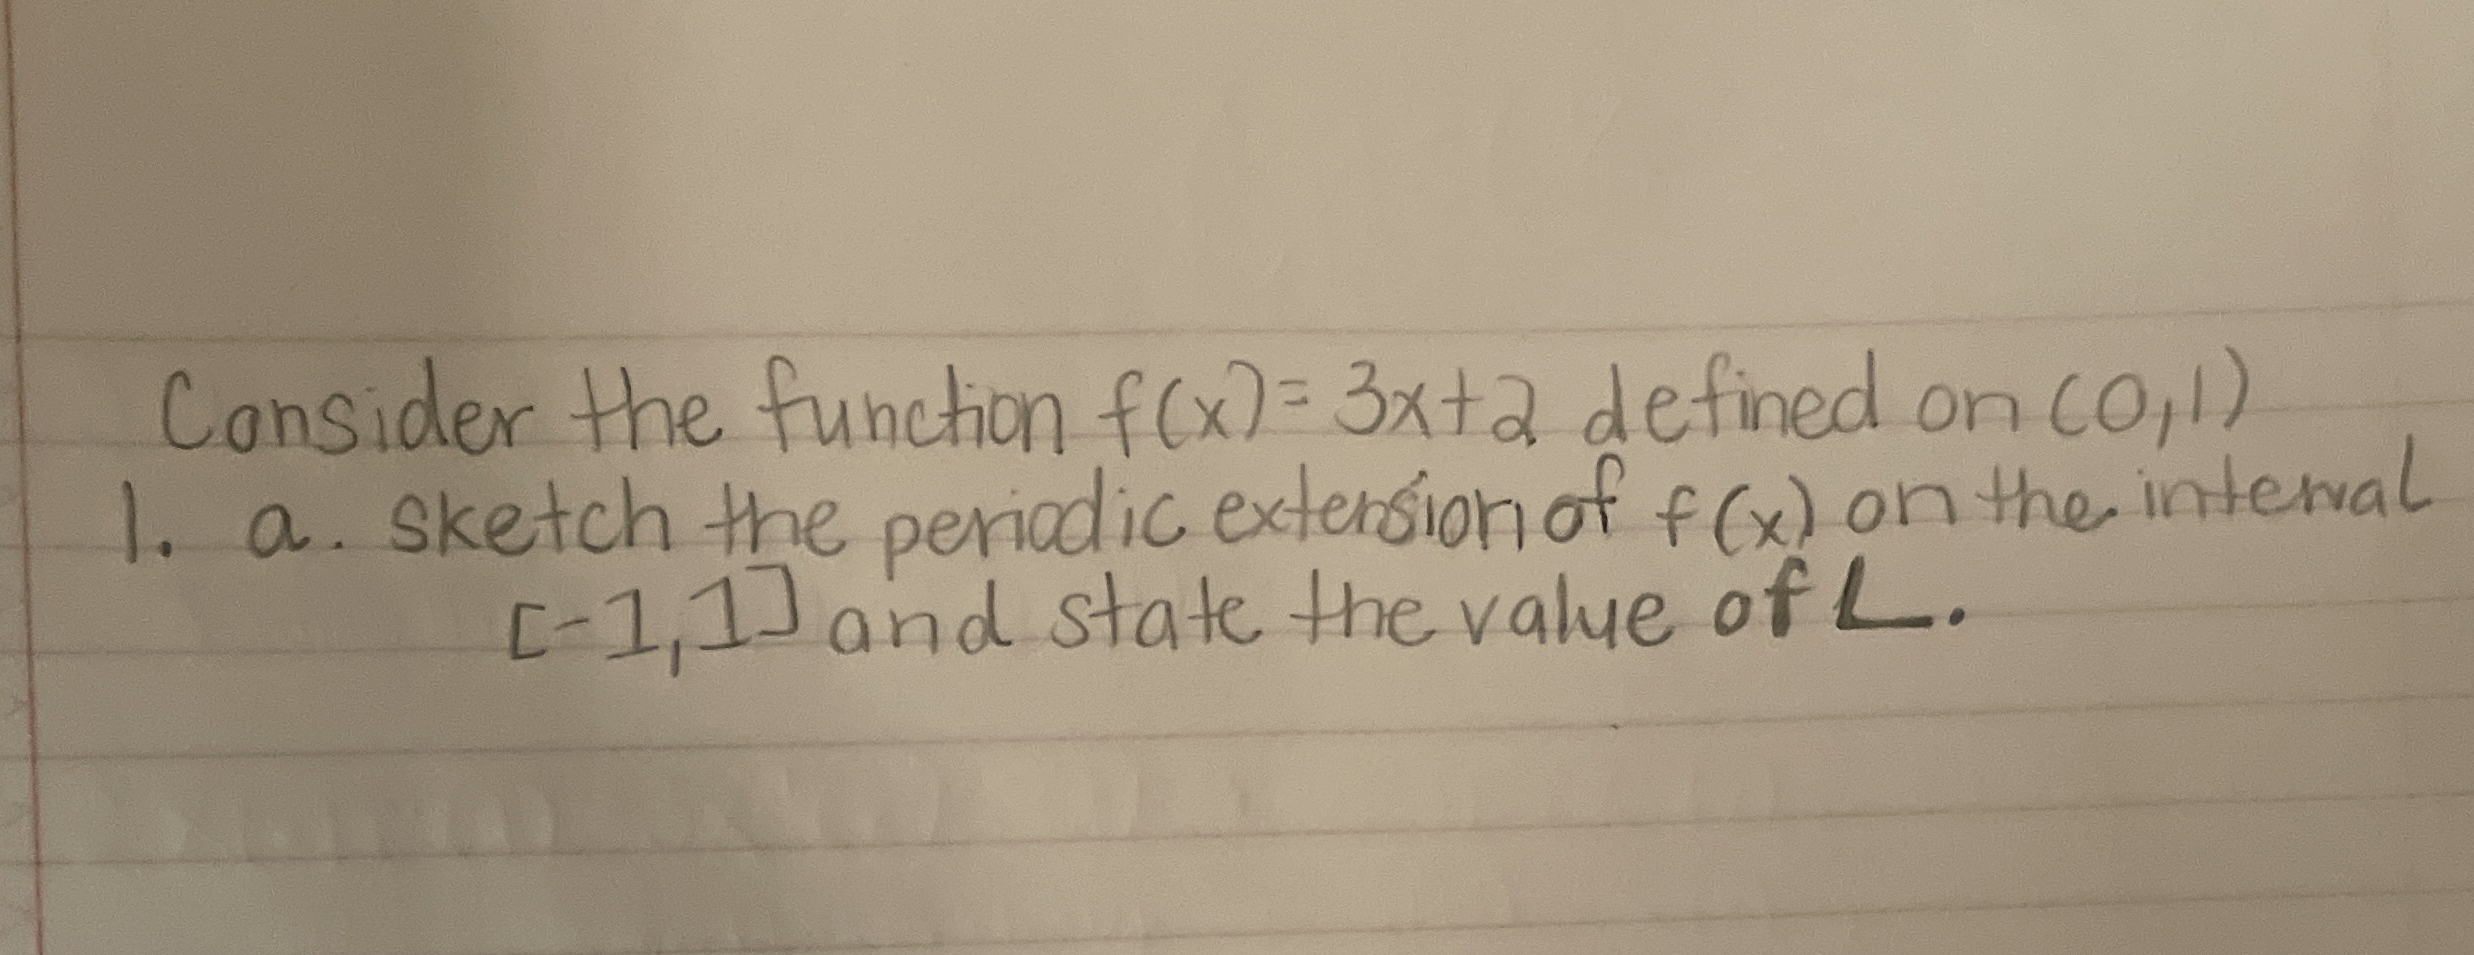 Consider the function f(x)= 3x+2 defined on (0,1)
1. a. sketch the periodic extension of f(x) on the interval
[-1,1] and state the value of L.